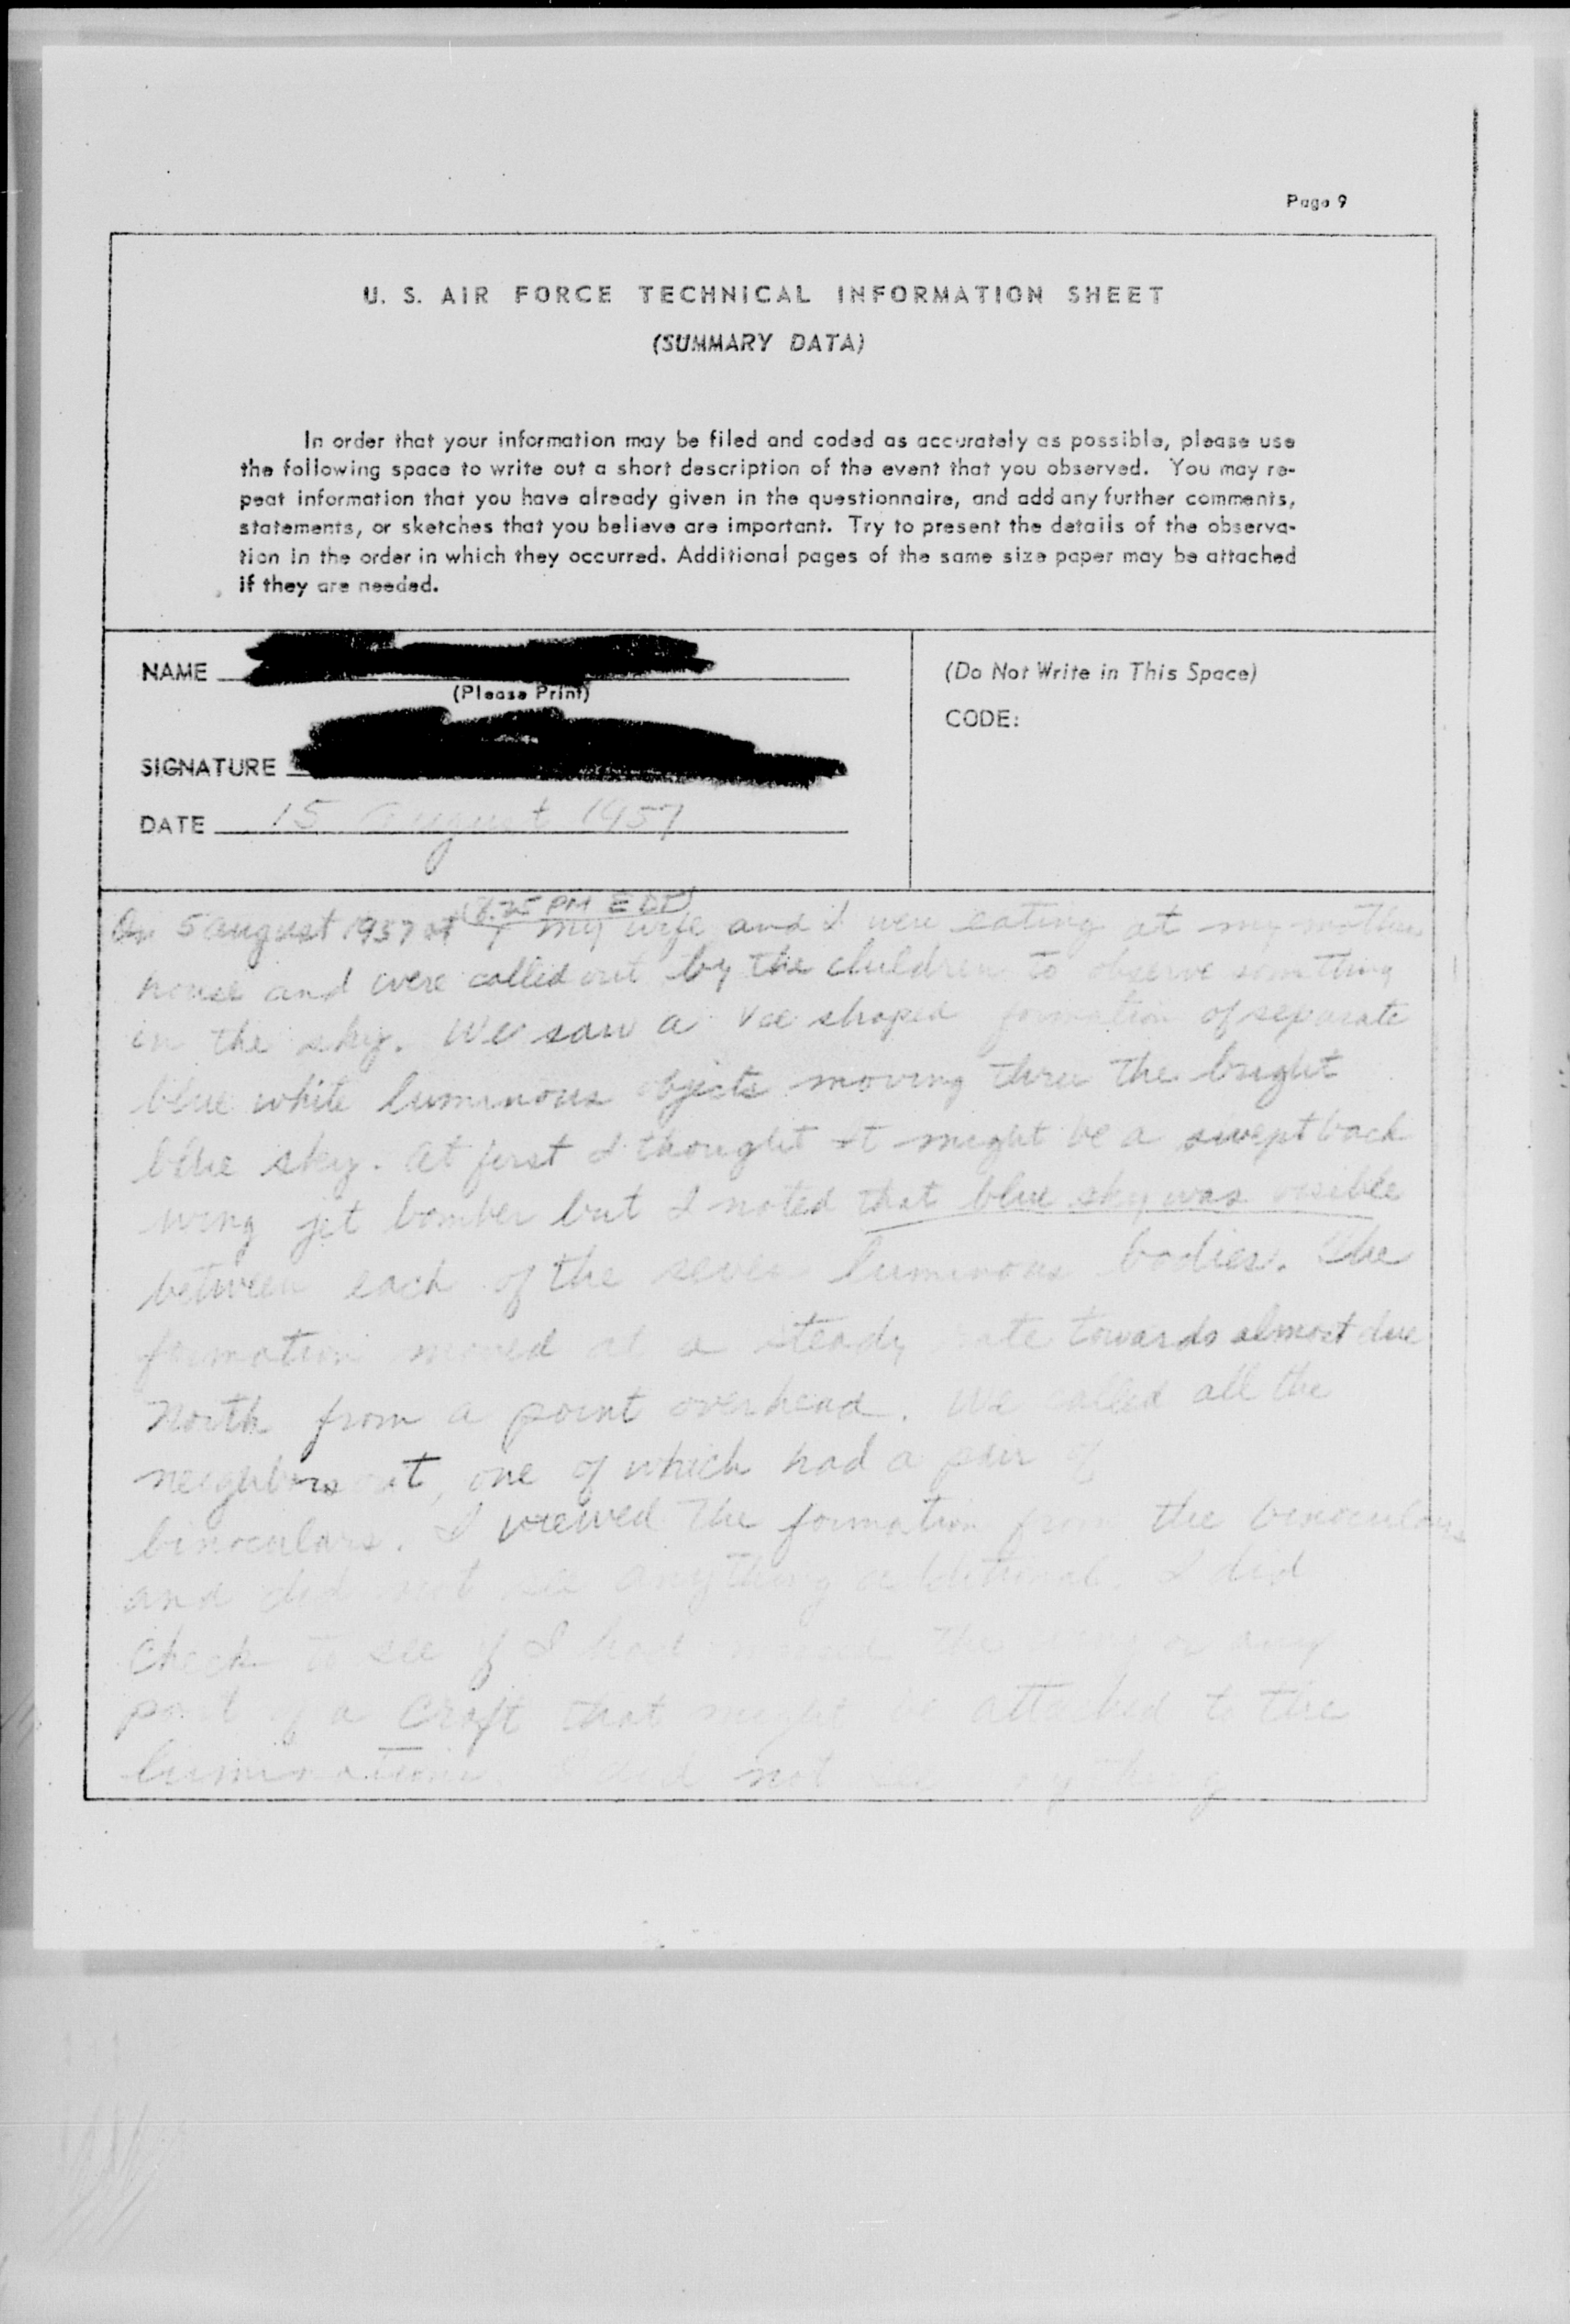 Page 9
U. S. AIR FORCE TECHNICAL INFORMATION SHEET
(SUMMARY DATA)
In order that your information may be filed and coded as accurately as possible, please use
the following space to write out a short description of the event that you observed. You may re-
peat information that you have already given in the questionnaire, and add any further comments,
statements, or sketches that you believe are important. Try to present the details of the observa-
tion in the order in which they occurred. Additional pages of the same size paper may be attached
if they are needed.
NAME
(Please Print)
SIGNATURE
DATE 15 August 1957
(Do Not Write in This Space)
CODE:
PM EDT
On 5 august 1957 at my wife and I were eating at my mothers
house and were called out by the children to observe something
in the sky. We saw a vee shaped formation of separate
blue white luminous objects moving thru the bright
blue sky. At first I thought it might be a swept back
wing jet bomber but I noted that blue sky was visible
between each of the seven luminous bodies. The
formation moved at a steady rate towards almost due
North from a point overhead. We called all the
neighbors out, one of which had a pair of
binoculars. I viewed the formation from the binoculars
and did not see anything additional. I did
check to see if I had the or any
part of a craft that might be attached to the
I did not see anything